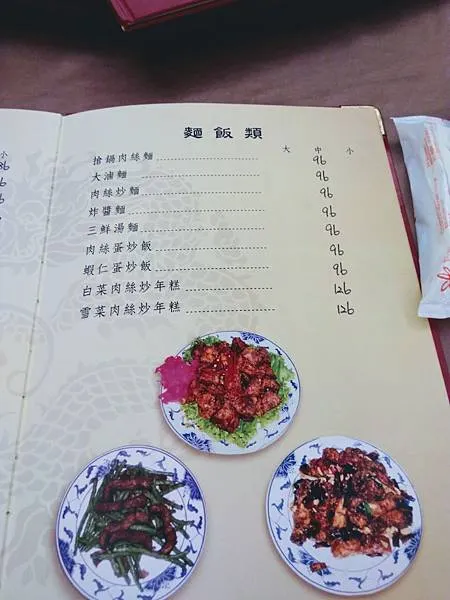 麵飯類
大 中 小
搶鍋肉絲麵 96
大滷麵 96
肉絲炒麵 96
炸醬麵 96
三鮮湯麵 96
肉絲蛋炒飯 96
蝦仁蛋炒飯 96
白菜肉絲炒年糕 126
雪菜肉絲炒年糕 126
小